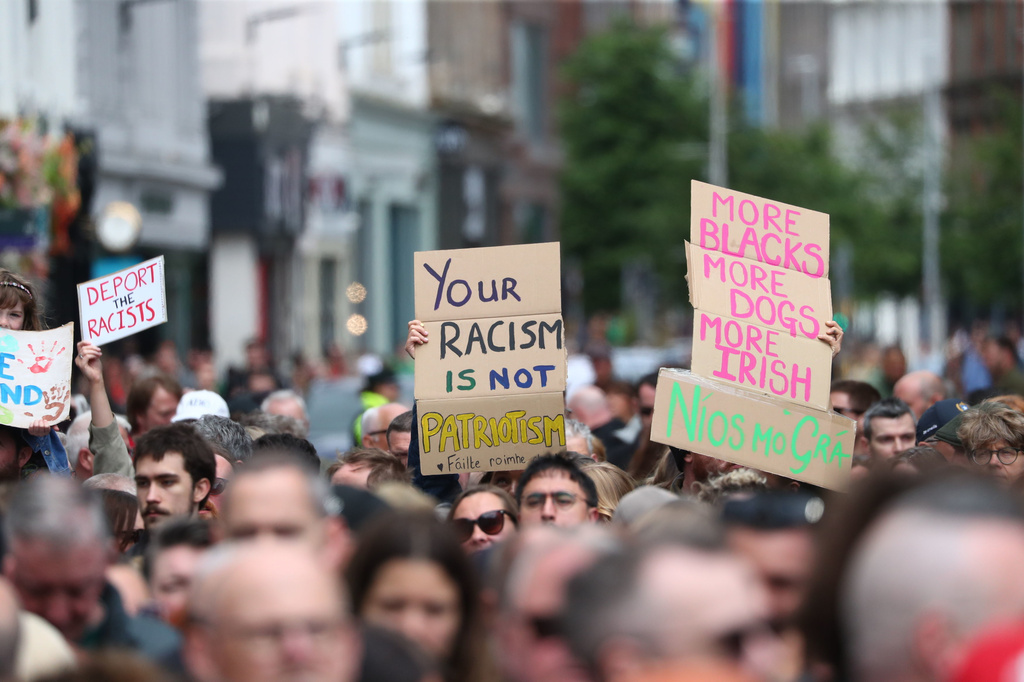 DEPORT
THE
RACISTS
ND
YOUR
RACISM
IS NOT
PATRIOTISM
♥ Fáilte roimhe
MORE
BLACKS
MORE
DOGS
MORE
IRISH
Níos mó Grá